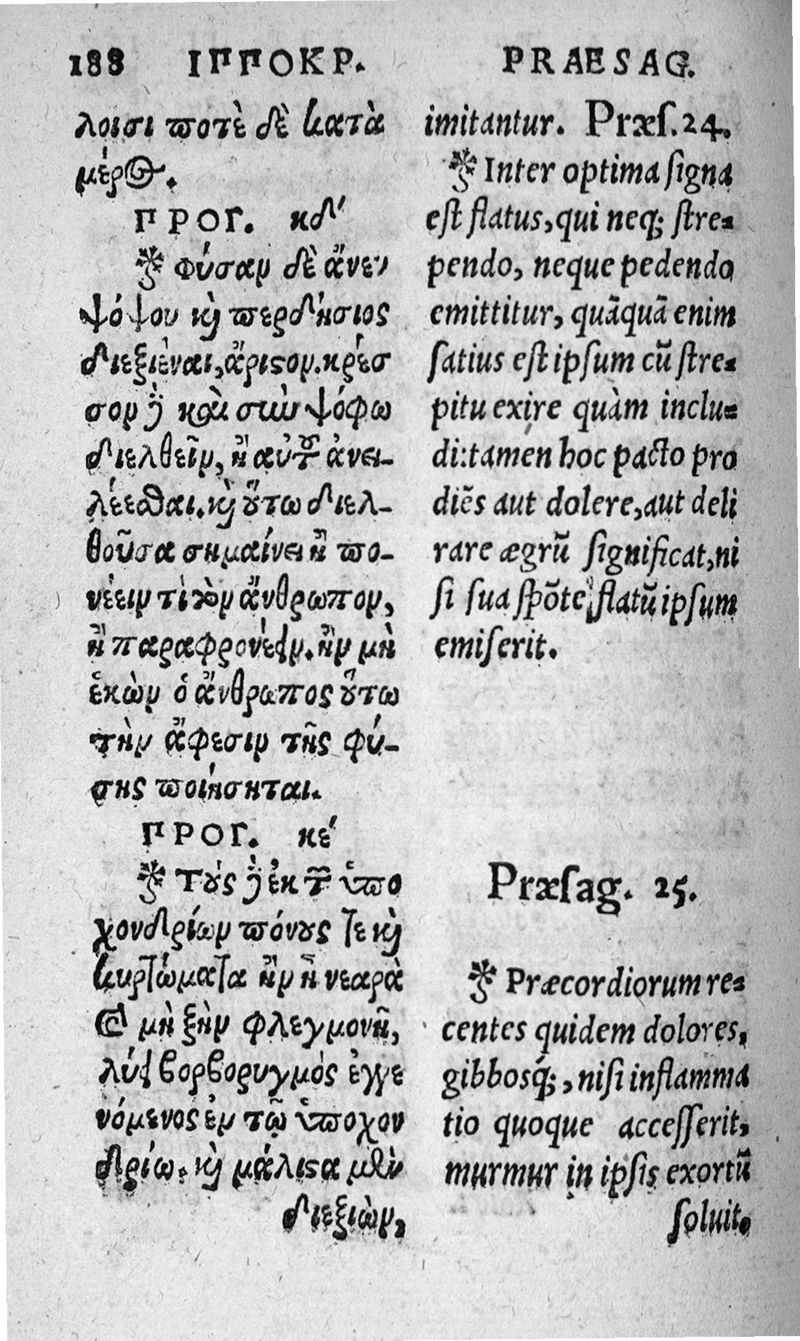 188 ΙΠΠΟΚΡ.
λοισι ποτὲ δὲ κατὰ
μέρος.
ΠΡΟΓ. κδ´
Φύσαν δὲ ἄνευ
ψόφου καὶ περδήσιος
διεξιέναι, ἄριστον. κρέσ
σον δὲ καὶ σὺν ψόφω
διελθεῖν, ἢ αὐτοῦ ἀνει-
λέεσθαι. καὶ οὕτω διελ-
θοῦσα σημαίνει ἢ πο-
νέειν τὶ τὸν ἄνθρωπον,
ἢ παραφρονέειν. ἢν μὴ
ἑκὼν ὁ ἄνθρωπος οὕτω
τὴν ἄφεσιν τῆς φύ-
σης ποιήσηται.
ΠΡΟΓ. κε´
Τοὺς δὲ ἐκ τῶν ὑπο
χονδρίων πόνους τε καὶ
κυρτώματα ἢν ἢ νεαρὰ
καὶ μὴ ξὴν φλεγμονῆ,
λύει βορβορυγμὸς ἐγγε
νόμενος ἐν τῷ ὑποχον
δρίω. καὶ μάλιστα μὲν
διεξιὼν,
PRAESAG.
imitantur. Præſ. 24.
Inter optima ſigna
eſt flatus, qui neq; ſtre-
pendo, neque pedendo
emittitur, quãquã enim
ſatius eſt ipſum cũ ſtre-
pitu exire quàm inclu-
di: tamen hoc pacto pro
diẽs aut dolere, aut deli
rare ægrũ ſignificat, ni
ſi ſua ſpõte flatũ ipſum
emiſerit.
Præſag. 25.
Præcordiorum re-
centes quidem dolores,
gibboſq́;, niſi inflamma
tio quoque acceſſerit,
murmur in ipſis exortũ
ſoluit.